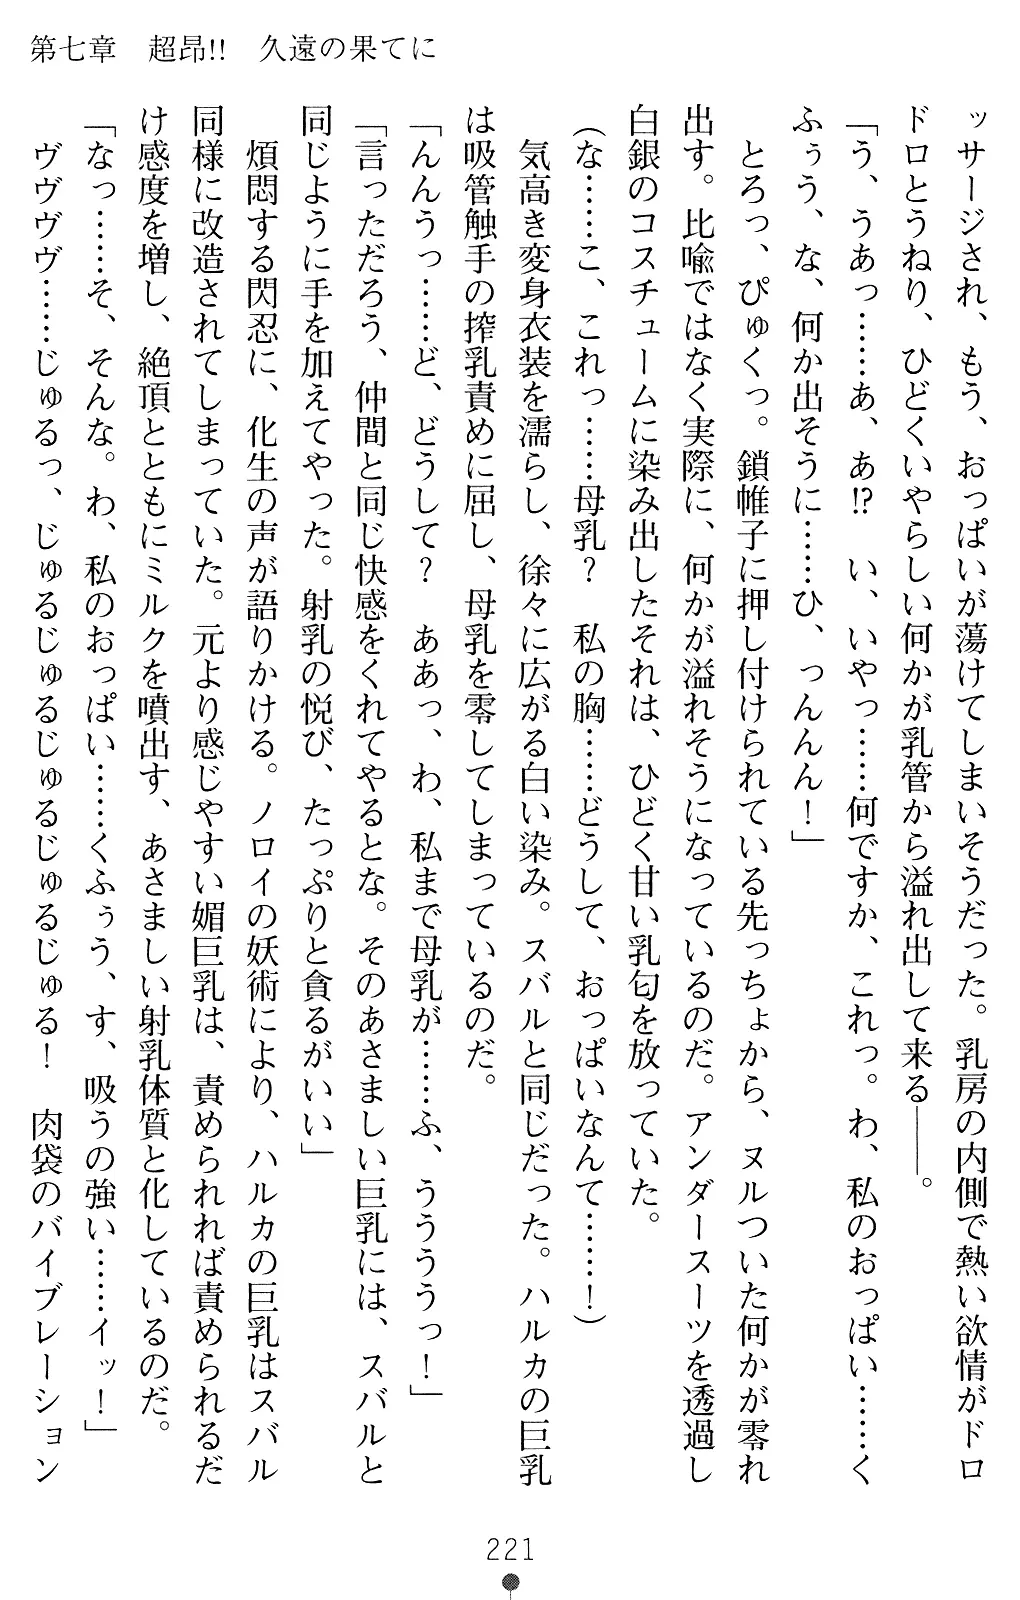 第七章　超昂!!　久遠の果てに
ッサージされ、もう、おっぱいが蕩けてしまいそうだった。乳房の内側で熱い欲情がドロ
ドロとうねり、ひどくいやらしい何かが乳管から溢れ出して来る――。
「う、うあっ……あ、あ!?　い、いやっ……何ですか、これっ。わ、私のおっぱい……く
ふぅう、な、何か出そうに……ひ、っんんん！」
　とろっ、ぴゅくっ。鎖帷子に押し付けられている先っちょから、ヌルついた何かが零れ
出す。比喩ではなく実際に、何かが溢れそうになっているのだ。アンダースーツを透過し
白銀のコスチュームに染み出したそれは、ひどく甘い乳匂を放っていた。
（な……こ、これっ……母乳？　私の胸……どうして、おっぱいなんて……！）
　気高き変身衣装を濡らし、徐々に広がる白い染み。スバルと同じだった。ハルカの巨乳
は吸管触手の搾乳責めに屈し、母乳を零してしまっているのだ。
「んんうっ……ど、どうして？　ああっ、わ、私まで母乳が……ふ、うううっ！」
「言っただろう、仲間と同じ快感をくれてやるとな。そのあさましい巨乳には、スバルと
同じように手を加えてやった。射乳の悦び、たっぷりと貪るがいい」
　煩悶する閃忍に、化生の声が語りかける。ノロイの妖術により、ハルカの巨乳はスバル
同様に改造されてしまっていた。元より感じやすい媚巨乳は、責められれば責められるだ
け感度を増し、絶頂とともにミルクを噴出す、あさましい射乳体質と化しているのだ。
「なっ……そ、そんな。わ、私のおっぱい……くふぅう、す、吸うの強い……イッ！」
　ヴヴヴヴ……じゅるっ、じゅるじゅるじゅるじゅるじゅる！　肉袋のバイブレーション
221